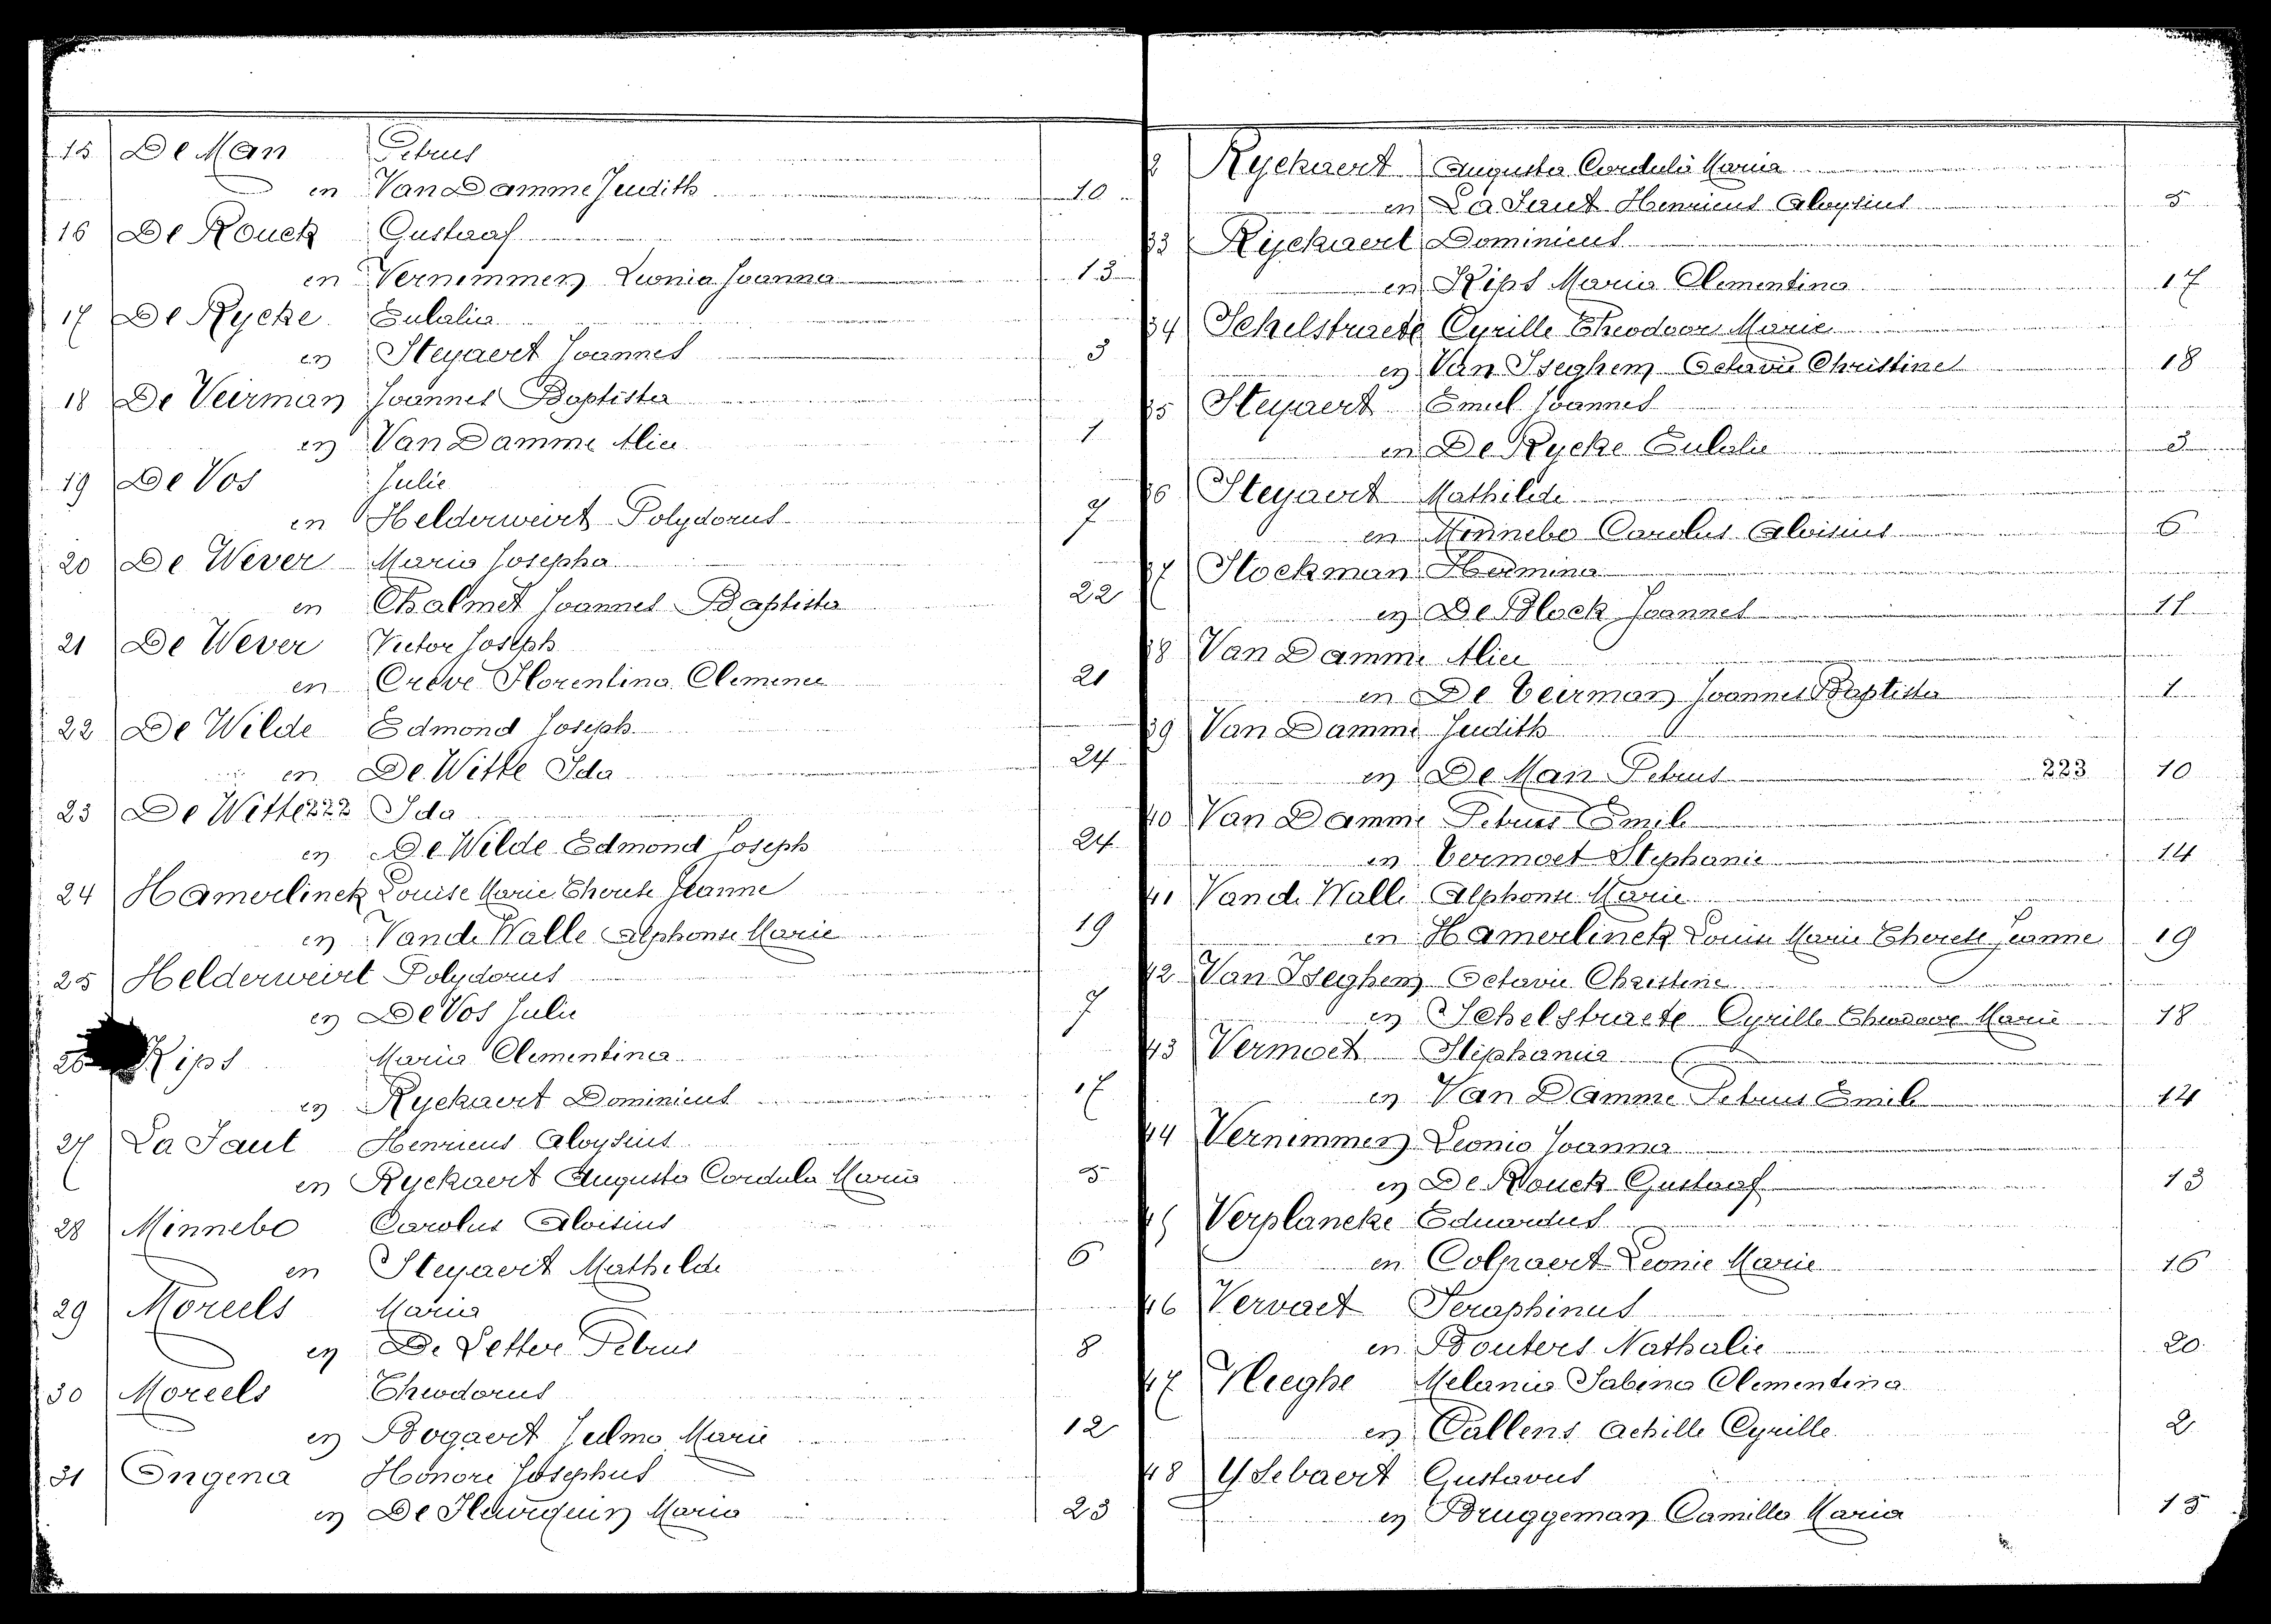 15 De Man Petrus
en Van Damme Judith 10
16 De Rouck Gustaaf
en Vernimmen Leonia Joanna 13
17 De Rycke Eulalia
en Steyaert Joannes 3
18 De Veirman Joannes Baptista
en Van Damme Alice 1
19 De Vos Julie
en Helderweirt Polydorus 7
20 De Wever Maria Josepha
en Chalmet Joannes Baptista 22
21 De Wever Victor Joseph
en Creve Florentina Clemence 21
22 De Wilde Edmond Joseph
en De Witte Ida 24
23 De Witte 222 Ida
en De Wilde Edmond Joseph 24
24 Hamerlinck Louise Marie Therese Jeanne
en Van de Walle Alphonse Marie 19
25 Helderweirt Polydorus
en De Vos Julie 7
26 Kips Maria Clementina
en Ryckaert Dominicus 17
27 La Faut Henricus Aloysius
en Ryckaert Augusta Cordula Maria 5
28 Minnebo Carolus Aloisius
en Steyaert Mathilde 6
29 Moreels Maria
en De Letter Petrus 8
30 Moreels Theodorus
en Bogaert Zulma Marie 12
31 Ongena Honoré Josephus
en De Maria 23
2 Ryckaert Augusta Cordula Maria
en La Faut Henricus Aloysius 5
33 Ryckaert Dominicus
en Kips Maria Clementina 17
34 Schelstraete Cyrille Theodoor Marie
en Van Iseghem Octavie Christine 18
35 Steyaert Emiel Joannes
en De Rycke Eulalie 3
36 Steyaert Mathilde
en Minnebo Carolus Aloisius 6
37 Stockman Hermina
en De Block Joannes 11
38 Van Damme Alice
en De Veirman Joannes Baptista 1
39 Van Damme Judith
en De Man Petrus 223 10
40 Van Damme Petrus Emile
en Vermoet Stephanie 14
41 Van de Walle Alphonse Marie
en Hamerlinck Louise Marie Therese Jeanne 19
42 Van Iseghem Octavie Christine
en Schelstraete Cyrille Theodoor Marie 18
43 Vermoet Stephania
en Van Damme Petrus Emile 14
44 Vernimmen Leonia Joanna
en De Rouck Gustaaf 13
45 Verplancke Eduardus
en Colpaert Leonie Marie 16
46 Vervaet Seraphinus
en Bouters Nathalie 20
47 Vlieghe Melania Sabina Clementina
en Callens Achille Cyrille 2
48 Ysebaert Gustavus
en Bruggeman Camilla Maria 15